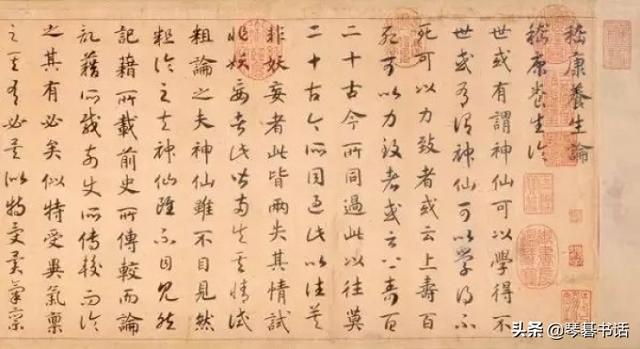 嵇康養生論
嵇康養生論
世或有謂神仙可以學得不
世或有謂神仙可以學得不
死可以力致者或云上壽百
死可以力致者或云上壽百
二十古今所同過此以往莫
二十古今所同過此以往莫
非妖妄者此皆兩失其情試
非妖妄者此皆兩失其情試
粗論之夫神仙雖不目見然
粗論之夫神仙雖不目見然
記籍所載前史所傳較而論
記籍所載前史所傳較而論
之其有必矣似特受異氣稟
之其有必矣似特受異氣稟
头条 @琴碁书话